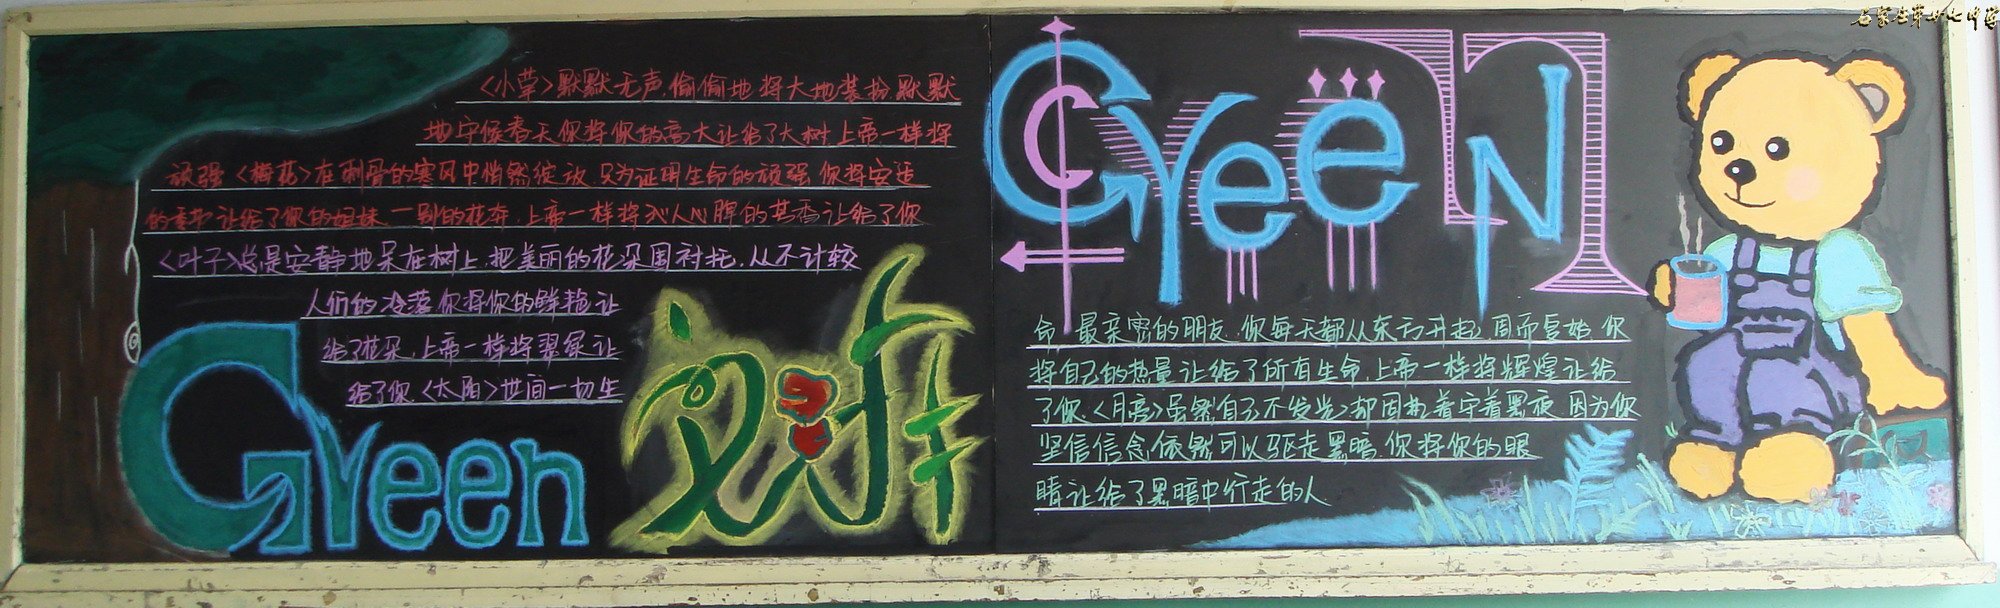 <小草>默默无声,偷偷地将大地装扮,默默
地守候春天你将你的高大让给了大树,上帝一样将
顽强<梅花>在刺骨的寒风中悄然绽放,只为证明生命的顽强,你将安适
的季节让给了你的姐妹,一别的花卉,上帝一样将沁人心脾的其香让给了你
<叶子>总是安静地呆在树上,把美丽的花朵围衬托,从不计较
人们的冷落你将你的鲜艳让
给了花朵,上帝一样将翠绿让
给了你.<太阳>世间一切生
Green
Green
命,最亲密的朋友,你每天都从东方升起,周而复始,你
将自己的热量让给了所有生命,上帝一样将辉煌让给
了你.<月亮>虽然自己不发光,却固执着守着黑夜,因为你
坚信信念依然可以驱走黑暗.你将你的眼
睛让给了黑暗中行走的人